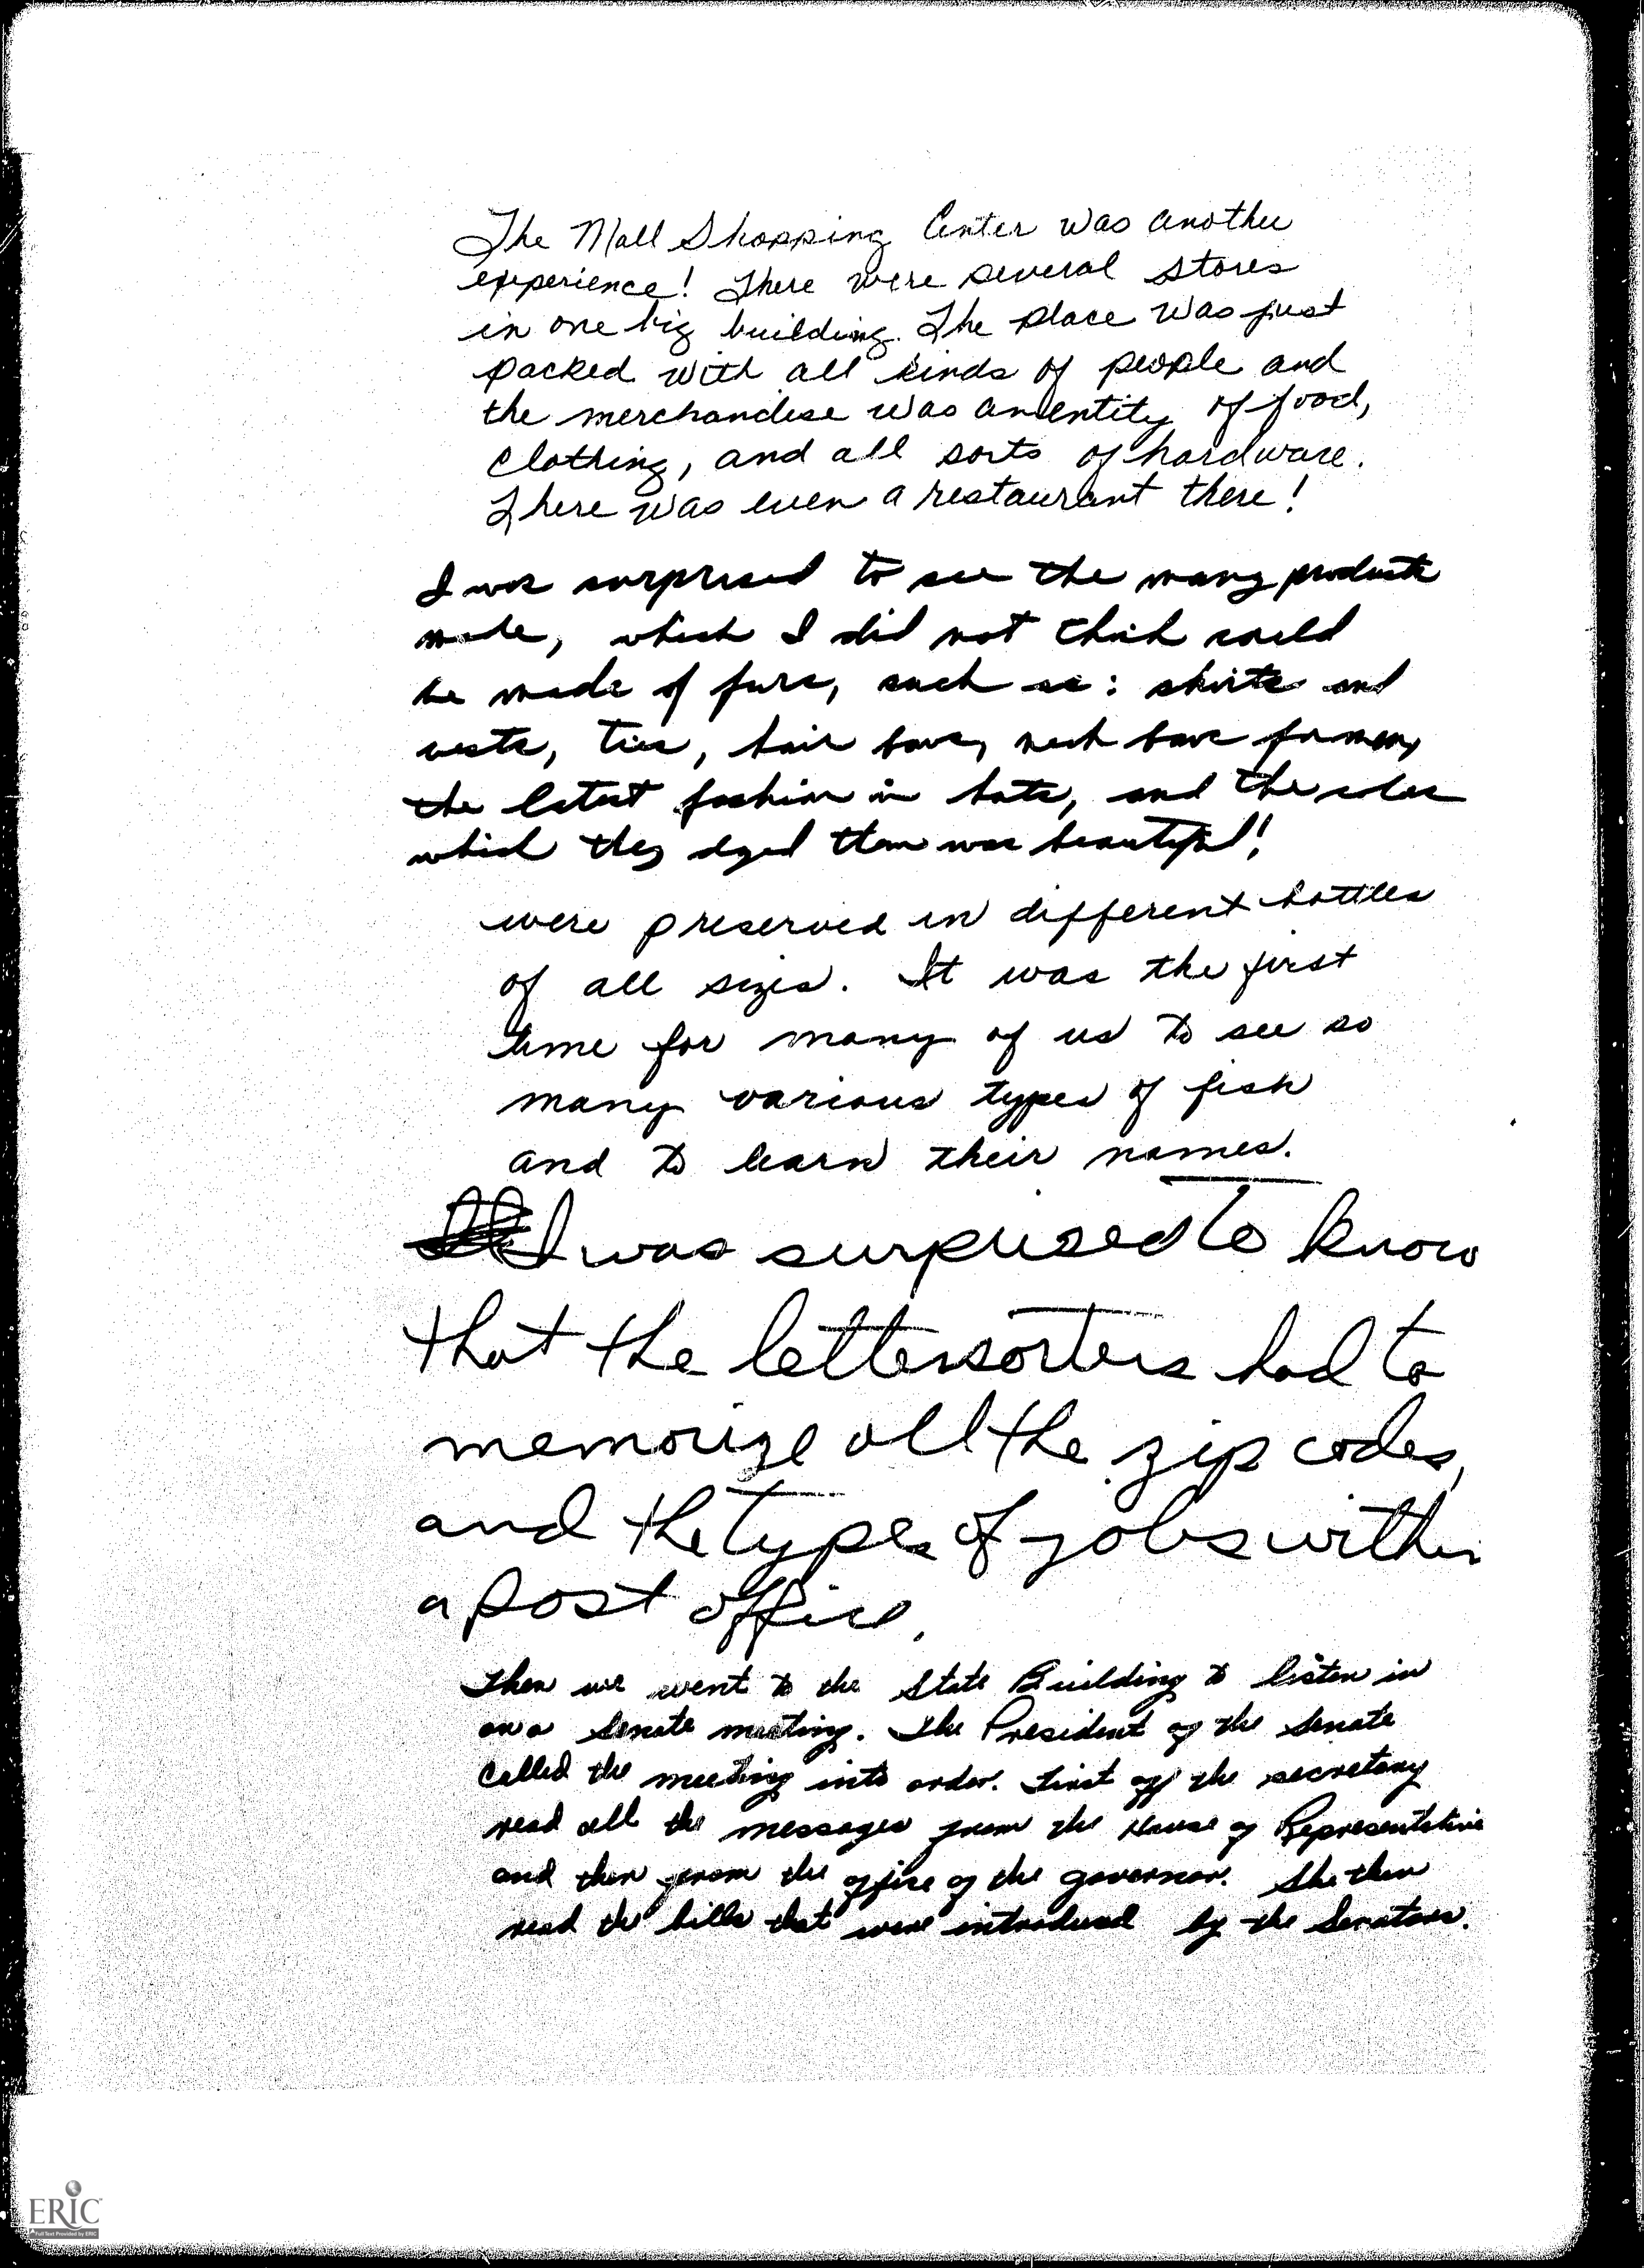 The Mall Shopping Center was another
experience! There were several stores
in one big building. The place was just
packed with all kinds of people and
the merchandise was an entity of food,
clothing, and all sorts of hardware.
There was even a restaurant there!
I was surprised to see the many products
made, which I did not think could
be made of furs, such as: shirts and
vests, ties, hair bows, neck bows for men,
the latest fashion in hats, and the colors
which they dyed them was beautiful!
were preserved in different bottles
of all sizes. It was the first
time for many of us to see so
many various types of fish
and to learn their names.
I was surprised to know
that the lettersorters had to
memorize all the zip codes,
and the types of jobs within
a post office.
Then we went to the State Building to listen in
on a Senate meeting. The President of the Senate
called the meeting into order. First off the secretary
read all the messages from the House of Representative
and then from the office of the governor. She then
read the bills that were introduced by the Senators.
ERIC
Full Text Provided by ERIC